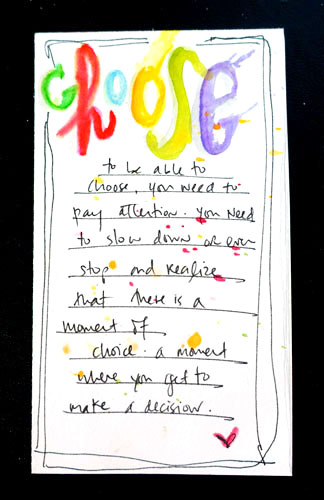 choose
to be able to
choose, you need to
pay attention. you need
to slow down or even
stop and realize
that there is a
moment of
choice. a moment
where you get to
make a decision.